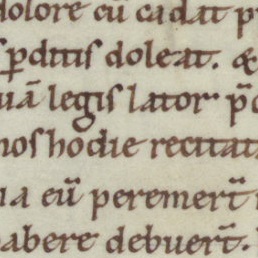 dolore cū cadat p
s ꝑditis doleat. &
uā legis lator p̄c
nos hodie recitat
na eū peremert̄
habere debuert̄.